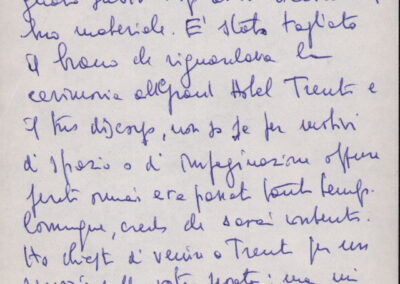 tuo materiale. E' stato tagliato
il brano che riguardava la
cerimonia all'Grand Hotel Trento e
il tuo discorso, non so se per motivi
di spazio o d' impaginazione oppure
perché ormai era passato tanto tempo.
Comunque, credo che sarai contento.
Ho chiesto di venire a Trento per un